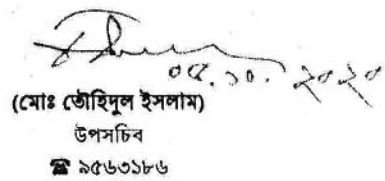 ০৫.১০.২০২০
(মোঃ তৌহিদুল ইসলাম)
উপসচিব
☎ ৯৫৬৩১৮৬